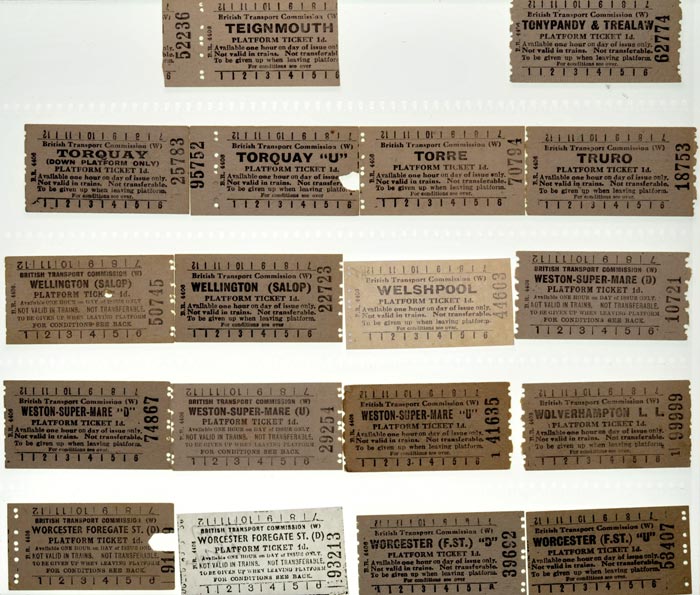 British Transport Commission (W)
TEIGNMOUTH
PLATFORM TICKET 1d.
Available one hour on day of issue only.
Not valid in trains. Not transferable.
To be given up when leaving platform.
For conditions see over
1 2 3 4 5 6
52236
British Transport Commission (W)
TONYPANDY & TREALAW
PLATFORM TICKET 1d.
Available one hour on day of issue only.
Not valid in trains. Not transferable.
To be given up when leaving platform.
For conditions see over
1 2 3 4 5 6
62774
7 8 9 10 11 12
British Transport Commission (W)
TORQUAY
(DOWN PLATFORM ONLY)
PLATFORM TICKET 1d.
Available one hour on day of issue only.
Not valid in trains. Not transferable.
To be given up when leaving platform.
For conditions see over
1 2 3 4 5 6
25783
95752
7 8 9 10 11 12
British Transport Commission (W)
TORQUAY "U"
PLATFORM TICKET 1d.
Available one hour on day of issue only.
Not valid in trains. Not transferable.
To be given up when leaving platform.
For conditions see over
1 2 3 4 5 6
7 8 9 10 11 12
British Transport Commission (W)
TORRE
PLATFORM TICKET 1d.
Available one hour on day of issue only.
Not valid in trains. Not transferable.
To be given up when leaving platform.
For conditions see over
1 2 3 4 5 6
70794
7 8 9 10 11 12
British Transport Commission (W)
TRURO
PLATFORM TICKET 1d.
Available one hour on day of issue only.
Not valid in trains. Not transferable.
To be given up when leaving platform.
For conditions see over
1 2 3 4 5 6
18753
7 8 9 10 11 12
BRITISH TRANSPORT COMMISSION (W)
WELLINGTON (SALOP)
PLATFORM TICKET 1d.
Available ONE HOUR on DAY OF ISSUE ONLY.
NOT VALID IN TRAINS. NOT TRANSFERABLE.
TO BE GIVEN UP WHEN LEAVING PLATFORM
FOR CONDITIONS SEE BACK
1 2 3 4 5 6
50745
7 8 9 10 11 12
British Transport Commission (W)
WELLINGTON (SALOP)
PLATFORM TICKET 1d.
Available one hour on day of issue only.
Not valid in trains. Not transferable.
To be given up when leaving platform.
For conditions see over
1 2 3 4 5 6
22723
7 8 9 10 11 12
British Transport Commission (W)
WELSHPOOL
PLATFORM TICKET 1d.
Available one hour on day of issue only.
Not valid in trains. Not transferable.
To be given up when leaving platform.
For conditions see over
1 2 3 4 5 6
44603
7 8 9 10 11 12
BRITISH TRANSPORT COMMISSION (W)
WESTON-SUPER-MARE (D)
PLATFORM TICKET 1d.
Available ONE HOUR on DAY OF ISSUE ONLY.
NOT VALID IN TRAINS. NOT TRANSFERABLE.
TO BE GIVEN UP WHEN LEAVING PLATFORM
FOR CONDITIONS SEE BACK
1 2 3 4 5 6
10721
7 8 9 10 11 12
British Transport Commission (W)
WESTON-SUPER-MARE "D"
PLATFORM TICKET 1d.
Available one hour on day of issue only.
Not valid in trains. Not transferable.
To be given up when leaving platform.
For conditions see over
1 2 3 4 5 6
74867
7 8 9 10 11 12
BRITISH TRANSPORT COMMISSION (W)
WESTON-SUPER-MARE (U)
PLATFORM TICKET 1d.
Available ONE HOUR on DAY OF ISSUE ONLY.
NOT VALID IN TRAINS. NOT TRANSFERABLE.
TO BE GIVEN UP WHEN LEAVING PLATFORM
FOR CONDITIONS SEE BACK
1 2 3 4 5 6
29254
7 8 9 10 11 12
British Transport Commission (W)
WESTON-SUPER-MARE "U"
PLATFORM TICKET 1d.
Available one hour on day of issue only.
Not valid in trains. Not transferable.
To be given up when leaving platform.
For conditions see over
1 2 3 4 5 6
1 41635
7 8 9 10 11 12
British Transport Commission (W)
WOLVERHAMPTON L. L.
PLATFORM TICKET 1d.
Available one hour on day of issue only.
Not valid in trains. Not transferable.
To be given up when leaving platform.
For conditions see over
1 2 3 4 5 6
1 99999
7 8 9 10 11 12
BRITISH TRANSPORT COMMISSION (W)
WORCESTER FOREGATE ST. (D)
PLATFORM TICKET 1d.
Available ONE HOUR on DAY OF ISSUE ONLY.
NOT VALID IN TRAINS. NOT TRANSFERABLE.
TO BE GIVEN UP WHEN LEAVING PLATFORM
FOR CONDITIONS SEE BACK
1 2 3 4 5 6
7 8 9 10 11 12
BRITISH TRANSPORT COMMISSION (W)
WORCESTER FOREGATE ST. (D)
PLATFORM TICKET 1d.
Available ONE HOUR on DAY OF ISSUE ONLY.
NOT VALID IN TRAINS. NOT TRANSFERABLE.
TO BE GIVEN UP WHEN LEAVING PLATFORM
FOR CONDITIONS SEE BACK.
1 2 3 4 5 6
93213
7 8 9 10 11 12
British Transport Commission (W)
WORCESTER (F.ST.) "D"
PLATFORM TICKET 1d.
Available one hour on day of issue only.
Not valid in trains. Not transferable.
To be given up when leaving platform.
For conditions see over
1 2 3 4 5 6
39692
7 8 9 10 11 12
British Transport Commission (W)
WORCESTER (F.ST.) "U"
PLATFORM TICKET 1d.
Available one hour on day of issue only.
Not valid in trains. Not transferable.
To be given up when leaving platform.
For conditions see over
1 2 3 4 5 6
53407